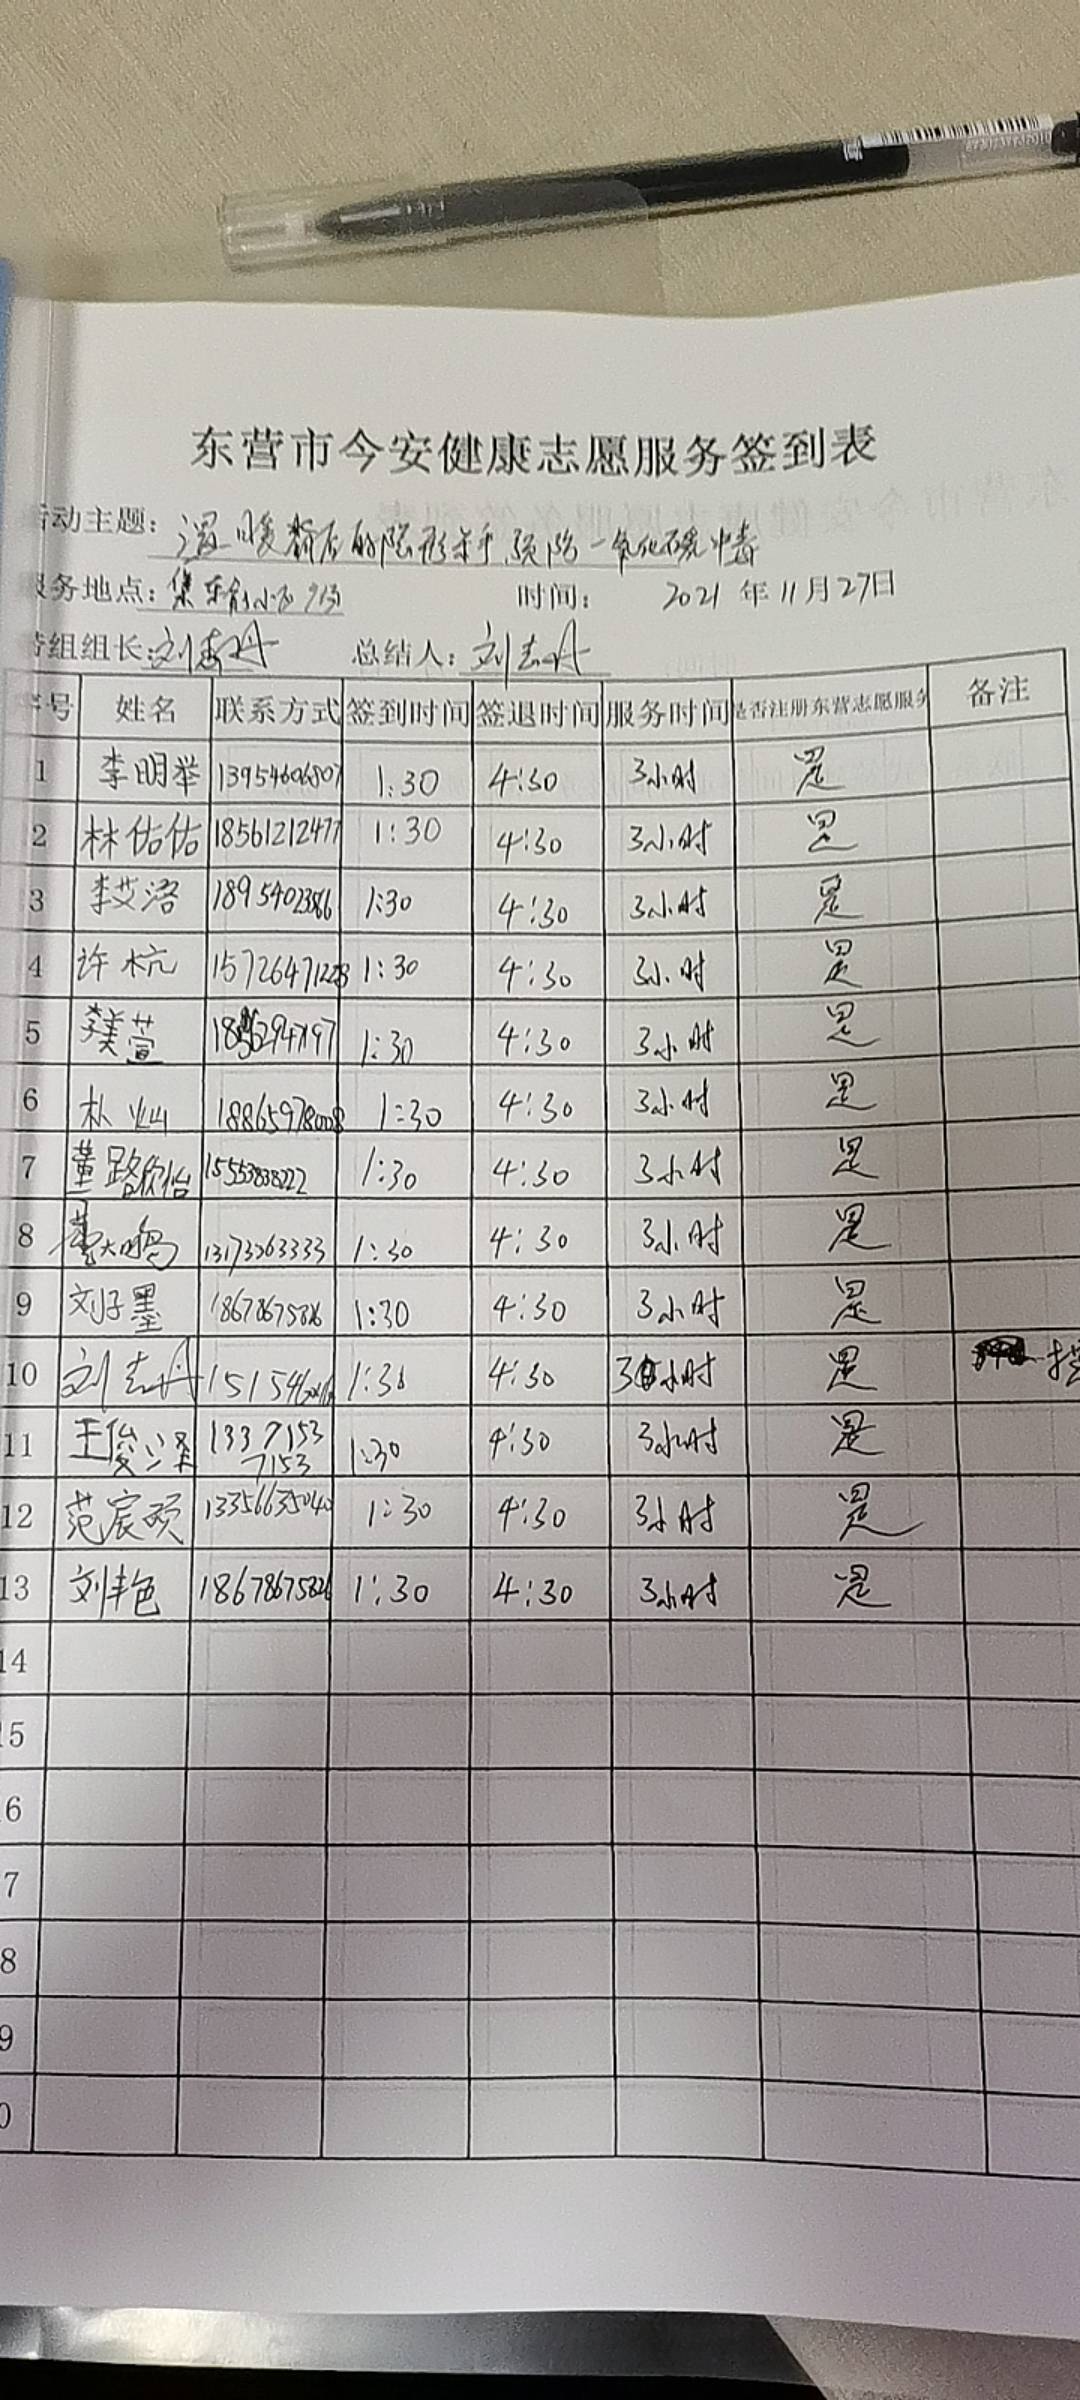 东营市今安健康志愿服务签到表
活动主题：温暖背后的隐形杀手，预防一氧化碳中毒
服务地点： 时间： 2021 年 11月27日
组组长：刘志丹 总结人：刘志丹
序号 姓名 联系方式 签到时间 签退时间 服务时间 是否注册东营志愿服务 备注
1 李明举 13954606807 1:30 4:30 3小时 是
2 林佑佑 18561212477 1:30 4:30 3小时 是
3 李艾洛 18954023866 1:30 4:30 3小时 是
4 许杭 15726471228 1:30 4:30 3小时 是
5 1:30 4:30 3小时 是
6 朴灿 18865978008 1:30 4:30 3小时 是
7 董路欣怡 15553838222 1:30 4:30 3小时 是
8 13173263333 1:30 4:30 3小时 是
9 刘子墨 18678675826 1:30 4:30 3小时 是
10 刘志丹 1:30 4:30 3小时 是
11 王俊泽 13371537153 1:30 4:30 3小时 是
12 范宸硕 13356635040 1:30 4:30 3小时 是
13 刘艳 18678675826 1:30 4:30 3小时 是
14
15
6
7
8
9
0